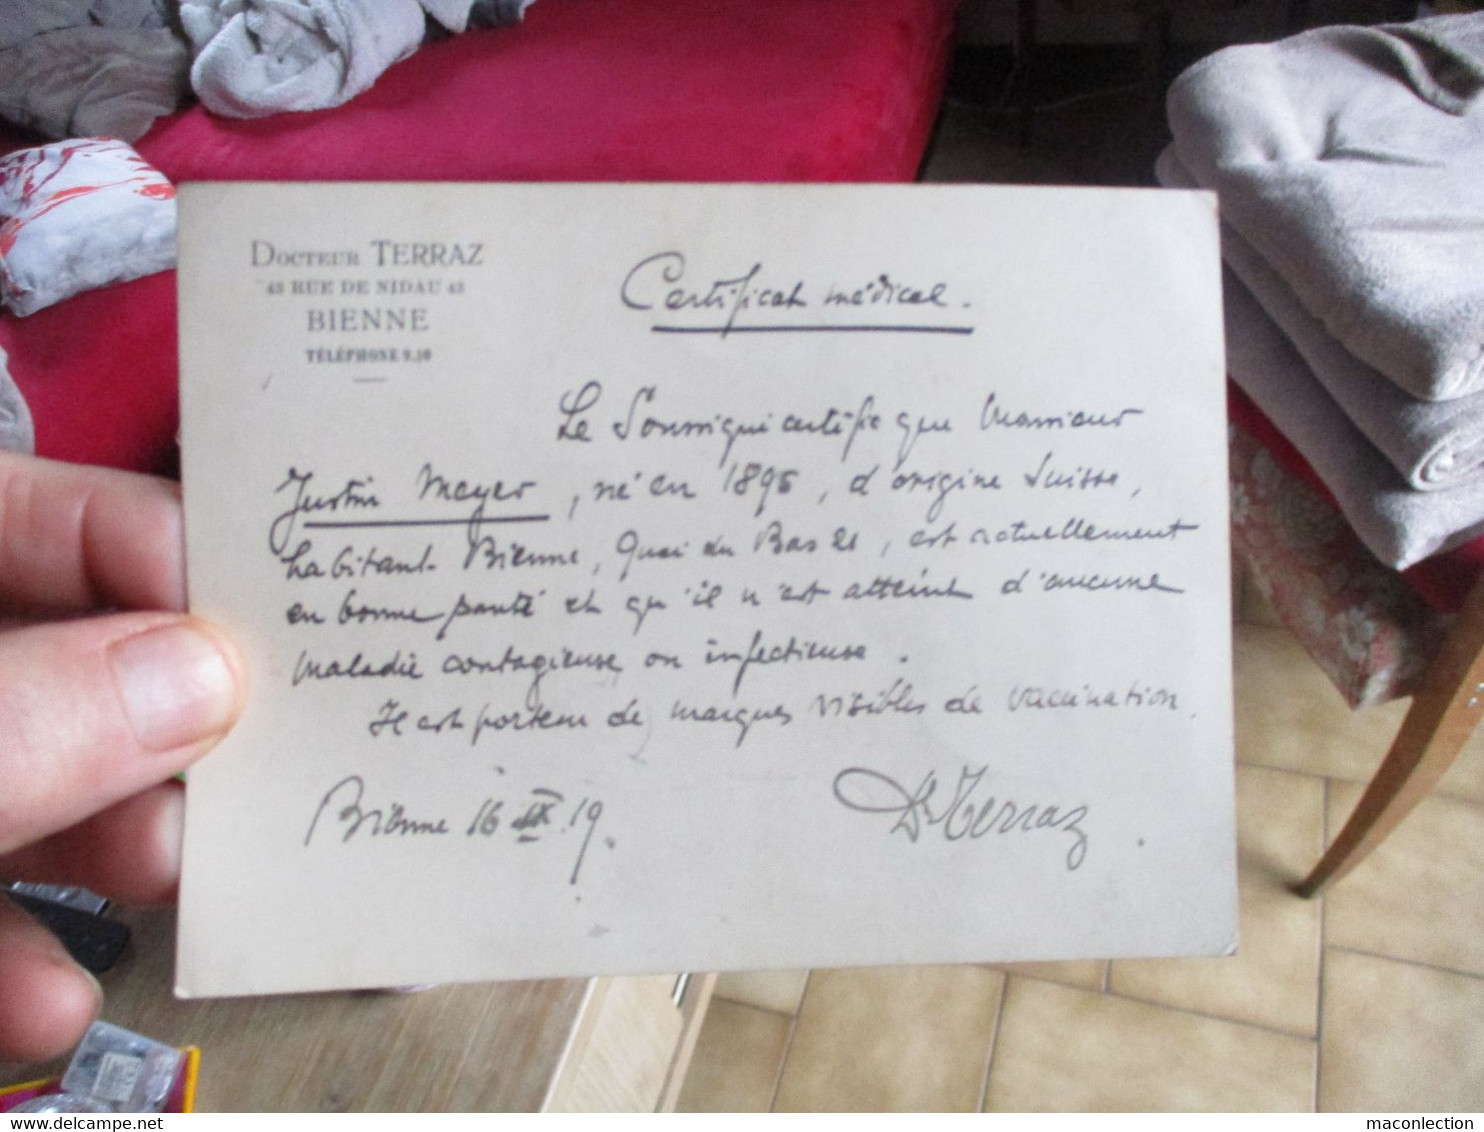 DOCTEUR TERRAZ
43 RUE DE NIDAU 43
BIENNE
TÉLÉPHONE 9.10
Certificat médical.
Le Soussigné certifie que Monsieur
Justin Meyer, né en 1896, d'origine Suisse,
habitant Bienne, Quai du Bas 21, est actuellement
en bonne santé et qu'il n'est atteint d'aucune
maladie contagieuse ou infectieuse.
Il est porteur de marques visibles de vaccination.
Bienne 16 IX. 19.
Dr Terraz.
maconlection